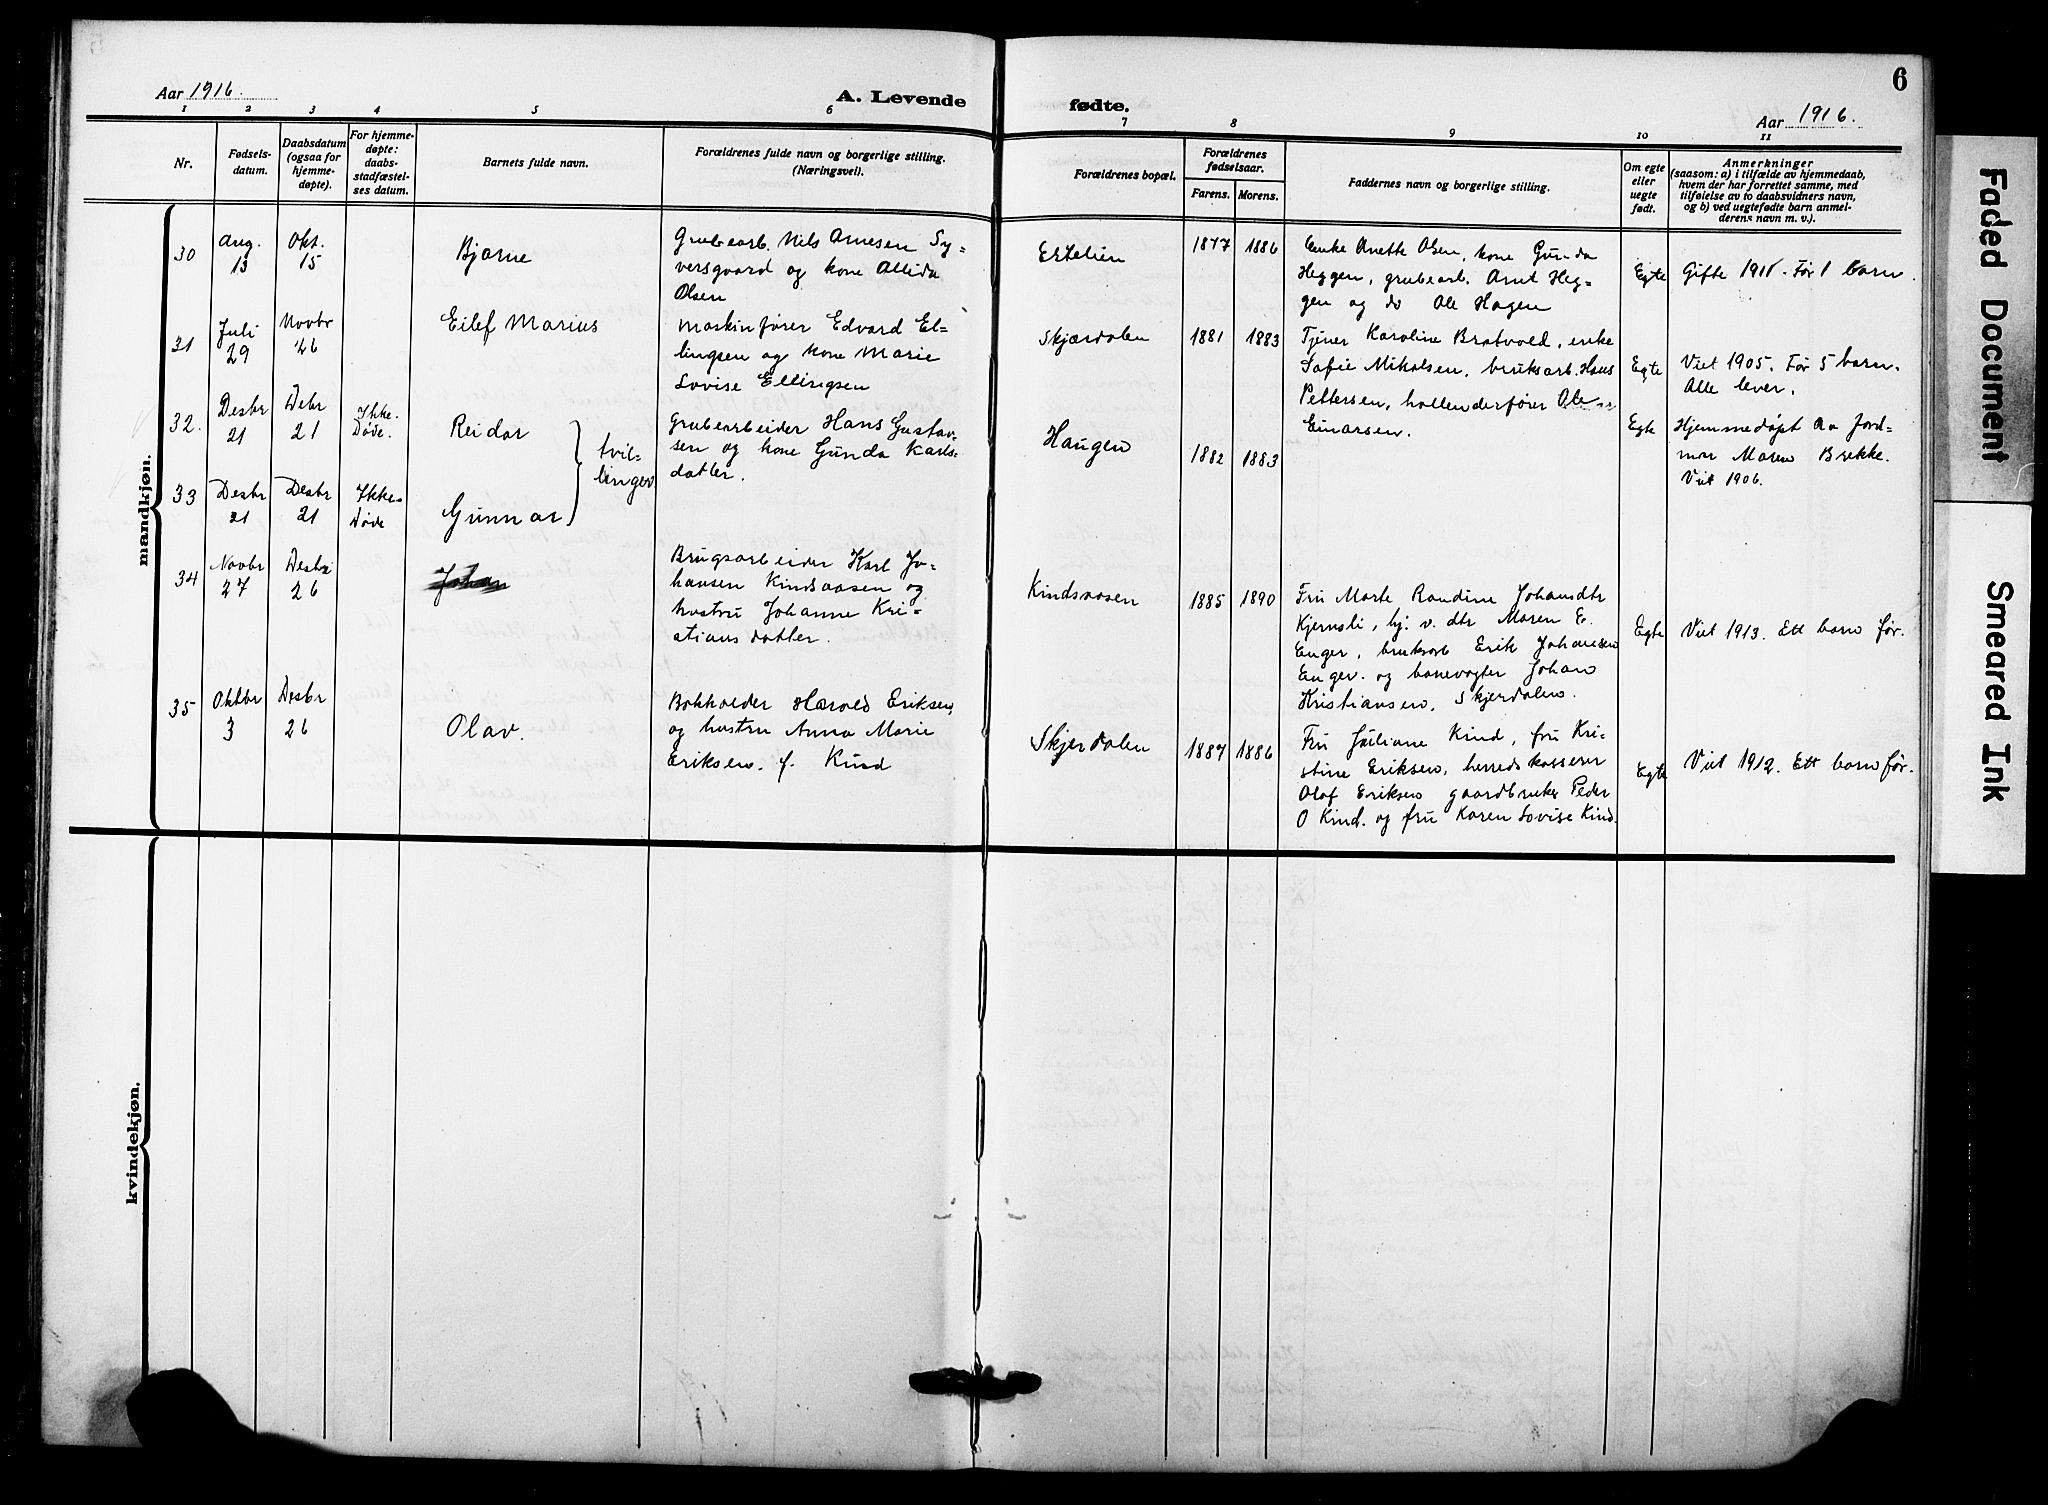 6
Aar 1916.
A. Levende
fødte.
Aar 1916.
1 2 3 4 5 6 7 8 9 10 11
Nr.
Fødsels-
datum.
Daabsdatum
(ogsaa for
hjemme-
døpte).
For hjemme-
døpte:
daabs-
stadfæstel-
ses datum.
Barnets fulde navn.
Forældrenes fulde navn og borgerlige stilling.
(Næringsvei).
Forældrenes bopæl.
Forældrenes
fødselsaar.
Farens. Morens.
Faddernes navn og borgerlige stilling.
Om egte
eller
uegte
født.
Anmerkninger
(saasom: a) i tilfælde av hjemmedaab,
hvem der har forrettet samme, med
tilføielse av to daabsvidners navn,
og b) ved uegtefødte barn anmel-
derens navn m. v.).
mandkjøn.
30
Aug.
13
Okt.
15
Bjarne
Grubearb. Nils Arnesen Sy-
versgaard og kone Allida
Olsen
Ertelien
1877 1886
Enke Anette Olsen, kone Gunda
Heggen, grubearb. Arnt Heg-
gen og do Ole Hagen
Egte
Gifte 1911. Før 1 barn.
31
Juli
29
Novbr
26
Eilef Marius
Maskinfører Edvard El-
lingsen og kone Marie
Lovise Ellingsen
Skjærdalen
1881 1883
Tjener Karoline Bratvold, enke
Sofie Mikalsen, bruksarb. Hans
Pettersen, hollenderfører Ole
Einarsen.
Egte
Viet 1905. Før 5 barn.
Alle lever.
32.
Desbr
21
Debr
21
Ikke.
Døde.
Reidar
tvil-
linger
Grubearbeider Hans Gustav-
sen og kone Gunda Karls-
datter.
Haugen
1882 1883
Egte
Hjemmedøpt av Jord-
mor Maren Brekke.
Viet 1906.
33
Desbr
21
Desbr
21
Ikke
Døde
Gunnar
34
Novbr
27
Desbr
26
Johan
Brugsarbeider Karl Jo-
hansen Kindsaasen og
hustru Johanne Kri-
stiansdatter.
Kindsaasen
1885 1890
Fru Marte Randine Johansdtr
Kjernsli, hj. v. dtr Maren E.
Enger, bruksarb Erik Johansen
Enger. og banevogter Johan
Kristiansen, Skjerdalen.
Egte
Viet 1913. Ett barn før.
35
Oktbr
3
Desbr
26
Olav.
Bokholder Harold Eriksen,
og hustru Anna Marie
Eriksen. f. Kind
Skjerdalen
1887 1886
Fru Juliane Kind, fru Kri-
stine Eriksen, herredskasserer
Olaf Eriksen gaardbruker Peder
O Kind. og fru Karen Lovise Kind.
Egte
Viet 1912. Ett barn før.
kvindekjøn.
Faded Document
Smeared Ink